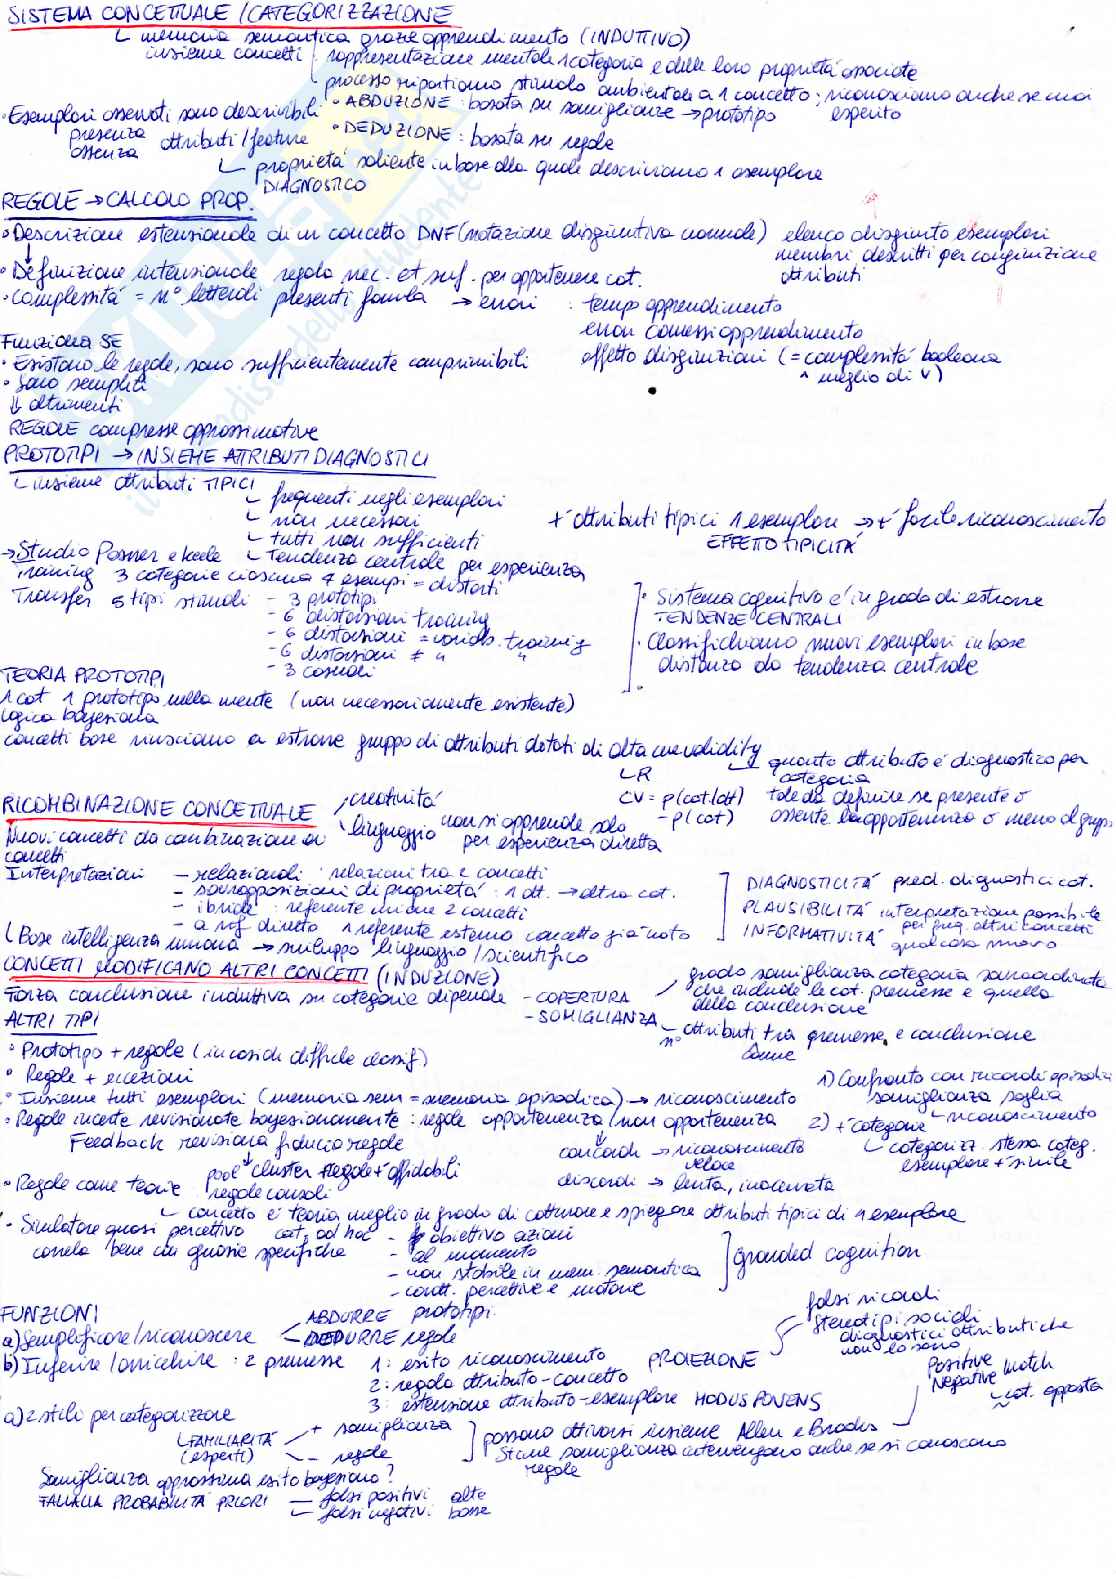 SISTEMA CONCETTUALE / CATEGORIZZAZIONE
memoria semantica grazie apprendimento (INDUTTIVO)
insieme concetti : rappresentazione mentale 1 categoria e delle loro proprietà associate
processo riportiamo stimolo ambientale a 1 concetto; riconosciamo anche se mai esperito
• Esemplari osservati sono descrivibili
presenza assenza attributi / feature
• ABDUZIONE : basata su somiglianze → prototipo
• DEDUZIONE : basata su regole
proprietà saliente in base alla quale descriviamo 1 esemplare
DIAGNOSTICO
REGOLE → CALCOLO PROP.
• Descrizione estensionale di un concetto DNF (notazione disgiuntiva normale) elenco disgiunto esemplari
membri descritti per congiunzione attributi
• Definizione intensionale regola nec. et suf. per appartenere cat.
• Complessità = n° letterali presenti formula → errori : tempo apprendimento
errori commessi apprendimento
effetto disgiunzioni (= complessità booleana
^ meglio di V)
Funziona SE
• Esistono le regole, sono sufficientemente comprimibili
• Sono semplici
↓ altrimenti
REGOLE compresse approssimative
PROTOTIPI → INSIEME ATTRIBUTI DIAGNOSTICI
insieme attributi TIPICI
frequenti negli esemplari
non necessari
tutti non sufficienti
Tendenza centrale per esperienza
+ attributi tipici 1 esemplare → + facile riconoscimento
EFFETTO TIPICITÀ
→ Studio Posner e Keele
Training 3 categorie ciascuna 4 esempi = distorti
Transfer 5 tipi stimoli - 3 prototipi
- 6 distorsioni training
- 6 distorsioni = variab. training
- 6 distorsioni ≠ " "
- 3 casuali
• Sistema cognitivo è in grado di estrarre
TENDENZE CENTRALI
• Classifichiamo nuovi esemplari in base
distanza da tendenza centrale
TEORIA PROTOTIPI
1 cat 1 prototipo nella mente (non necessariamente esistente)
Logica bayesiana
concetti base riusciamo a estrarre gruppo di attributi dotati di alta cue validity
quanto attributo è diagnostico per categoria
CV = p(cat/att) - p(cat)
tale da definire se presente o
assente la appartenenza o meno al gruppo
RICOMBINAZIONE CONCETTUALE
creatività
linguaggio
non si apprende solo
per esperienza diretta
Nuovi concetti da combinazione di concetti
Interpretazioni - relazionali : relazioni tra 2 concetti
- sovrapposizioni di proprietà : 1 att. → altra cat.
- ibride : referente unione 2 concetti
- a rif. diretto 1 referente esterno concetto già noto
DIAGNOSTICITÀ pred. diagnostici cat.
PLAUSIBILITÀ interpretazione possibile
INFORMATIVITÀ qualcosa nuovo
Base intelligenza umana → sviluppo linguaggio / scientifico
CONCETTI MODIFICANO ALTRI CONCETTI (INDUZIONE)
Forza conclusione induttiva su categorie dipende - COPERTURA
grado somiglianza categoria sovraordinata
che include le cat. premesse e quella
della conclusione
- SOMIGLIANZA
n° attributi tra premesse e conclusione
ALTRI TIPI
• Prototipo + regole (in casi di difficile classif.)
• Regole + eccezioni
• Insieme tutti esemplari (memoria sem = memoria episodica) → riconoscimento
1) Confronto con ricordi episodici
somiglianza soglia
riconoscimento
2) + categorie
categorizz. stessa categ.
esemplare + simile
• Regole incerte revisionate bayesianamente : regole appartenenza / non appartenenza
Feedback revisiona fiducia regole
pool cluster regole + affidabili
concordi → riconoscimento veloce
discordi → lenta, inaccurata
• Regole come teorie regole causali
concetto è teoria meglio in grado di catturare e spiegare attributi tipici di 1 esemplare
• Simulatore quasi percettivo cat. ad hoc - obiettivo azioni
- al momento
- non stabile in mem. semantica
- caratt. percettive e motorie
grounded cognition
FUNZIONI
a) Semplificare / riconoscere
ABDURRE prototipi
DEDURRE regole
b) Inferire / arricchire : 2 premesse 1 : esito riconoscimento
2 : regola attributo-concetto
3 : estensione attributo-esemplare MODUS PONENS
PROIEZIONE
falsi ricordi
stereotipi sociali
diagnostici attributi che
non lo sono
a) 2 stili per categorizzare
FAMILIARITÀ + somiglianza
(esperti) - regole
possono attivarsi insieme Allen e Brooks
Stime somiglianza intervengono anche se si conoscono
regole
Positive
Negative match
cat. opposta
Somiglianza approssima esito bayesiano?
FALLACIA PROBABILITÀ PRIORI - falsi positivi alte
falsi negativi basse